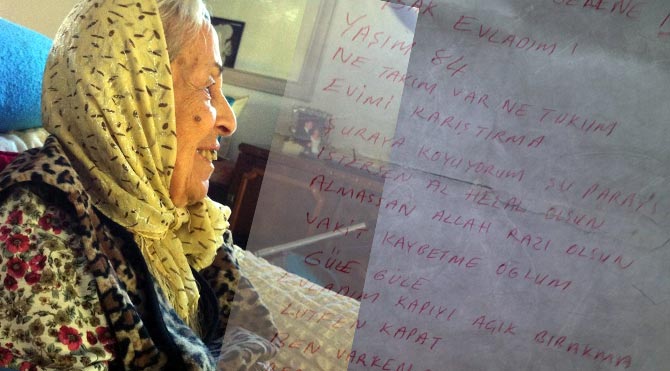 GELENE
BAK EVLADIM!
YAŞIM 84
NE TAKIM VAR NE TUKUM
EVİMİ KARIŞTIRMA
ŞURAYA KOYUYORUM ŞU PARAYI
İSTERSEN AL HELAL OLSUN
ALMASSAN ALLAH RAZI OLSUN
VAKİT KAYBETME OĞLUM
GÜLE GÜLE
EVLADIM KAPIYI AÇIK BIRAKMA
LÜTFEN KAPAT
BEN VARKEN